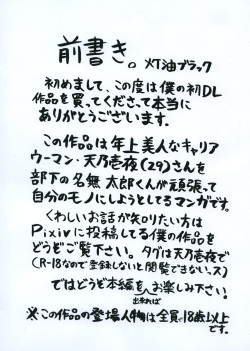 前書き。灯油ブラック
初めまして、この度は僕の初DL
作品を買ってくださって本当に
ありがとうございます。
この作品は年上美人なキャリア
ウーマン・天乃壱夜(29)さんを
部下の名無太郎くんが頑張って
自分のモノにしようとしてるマンガです。
くわしいお話が知りたい方は
Pixivに投稿してる僕の作品を
どうぞご覧下さい。タグは天乃壱夜で
(R-18なので登録しないと閲覧できないっス)
ではどうぞ本編をお楽しみ下さい。
出来れば
※この作品の登場人物は全員18歳以上
です。